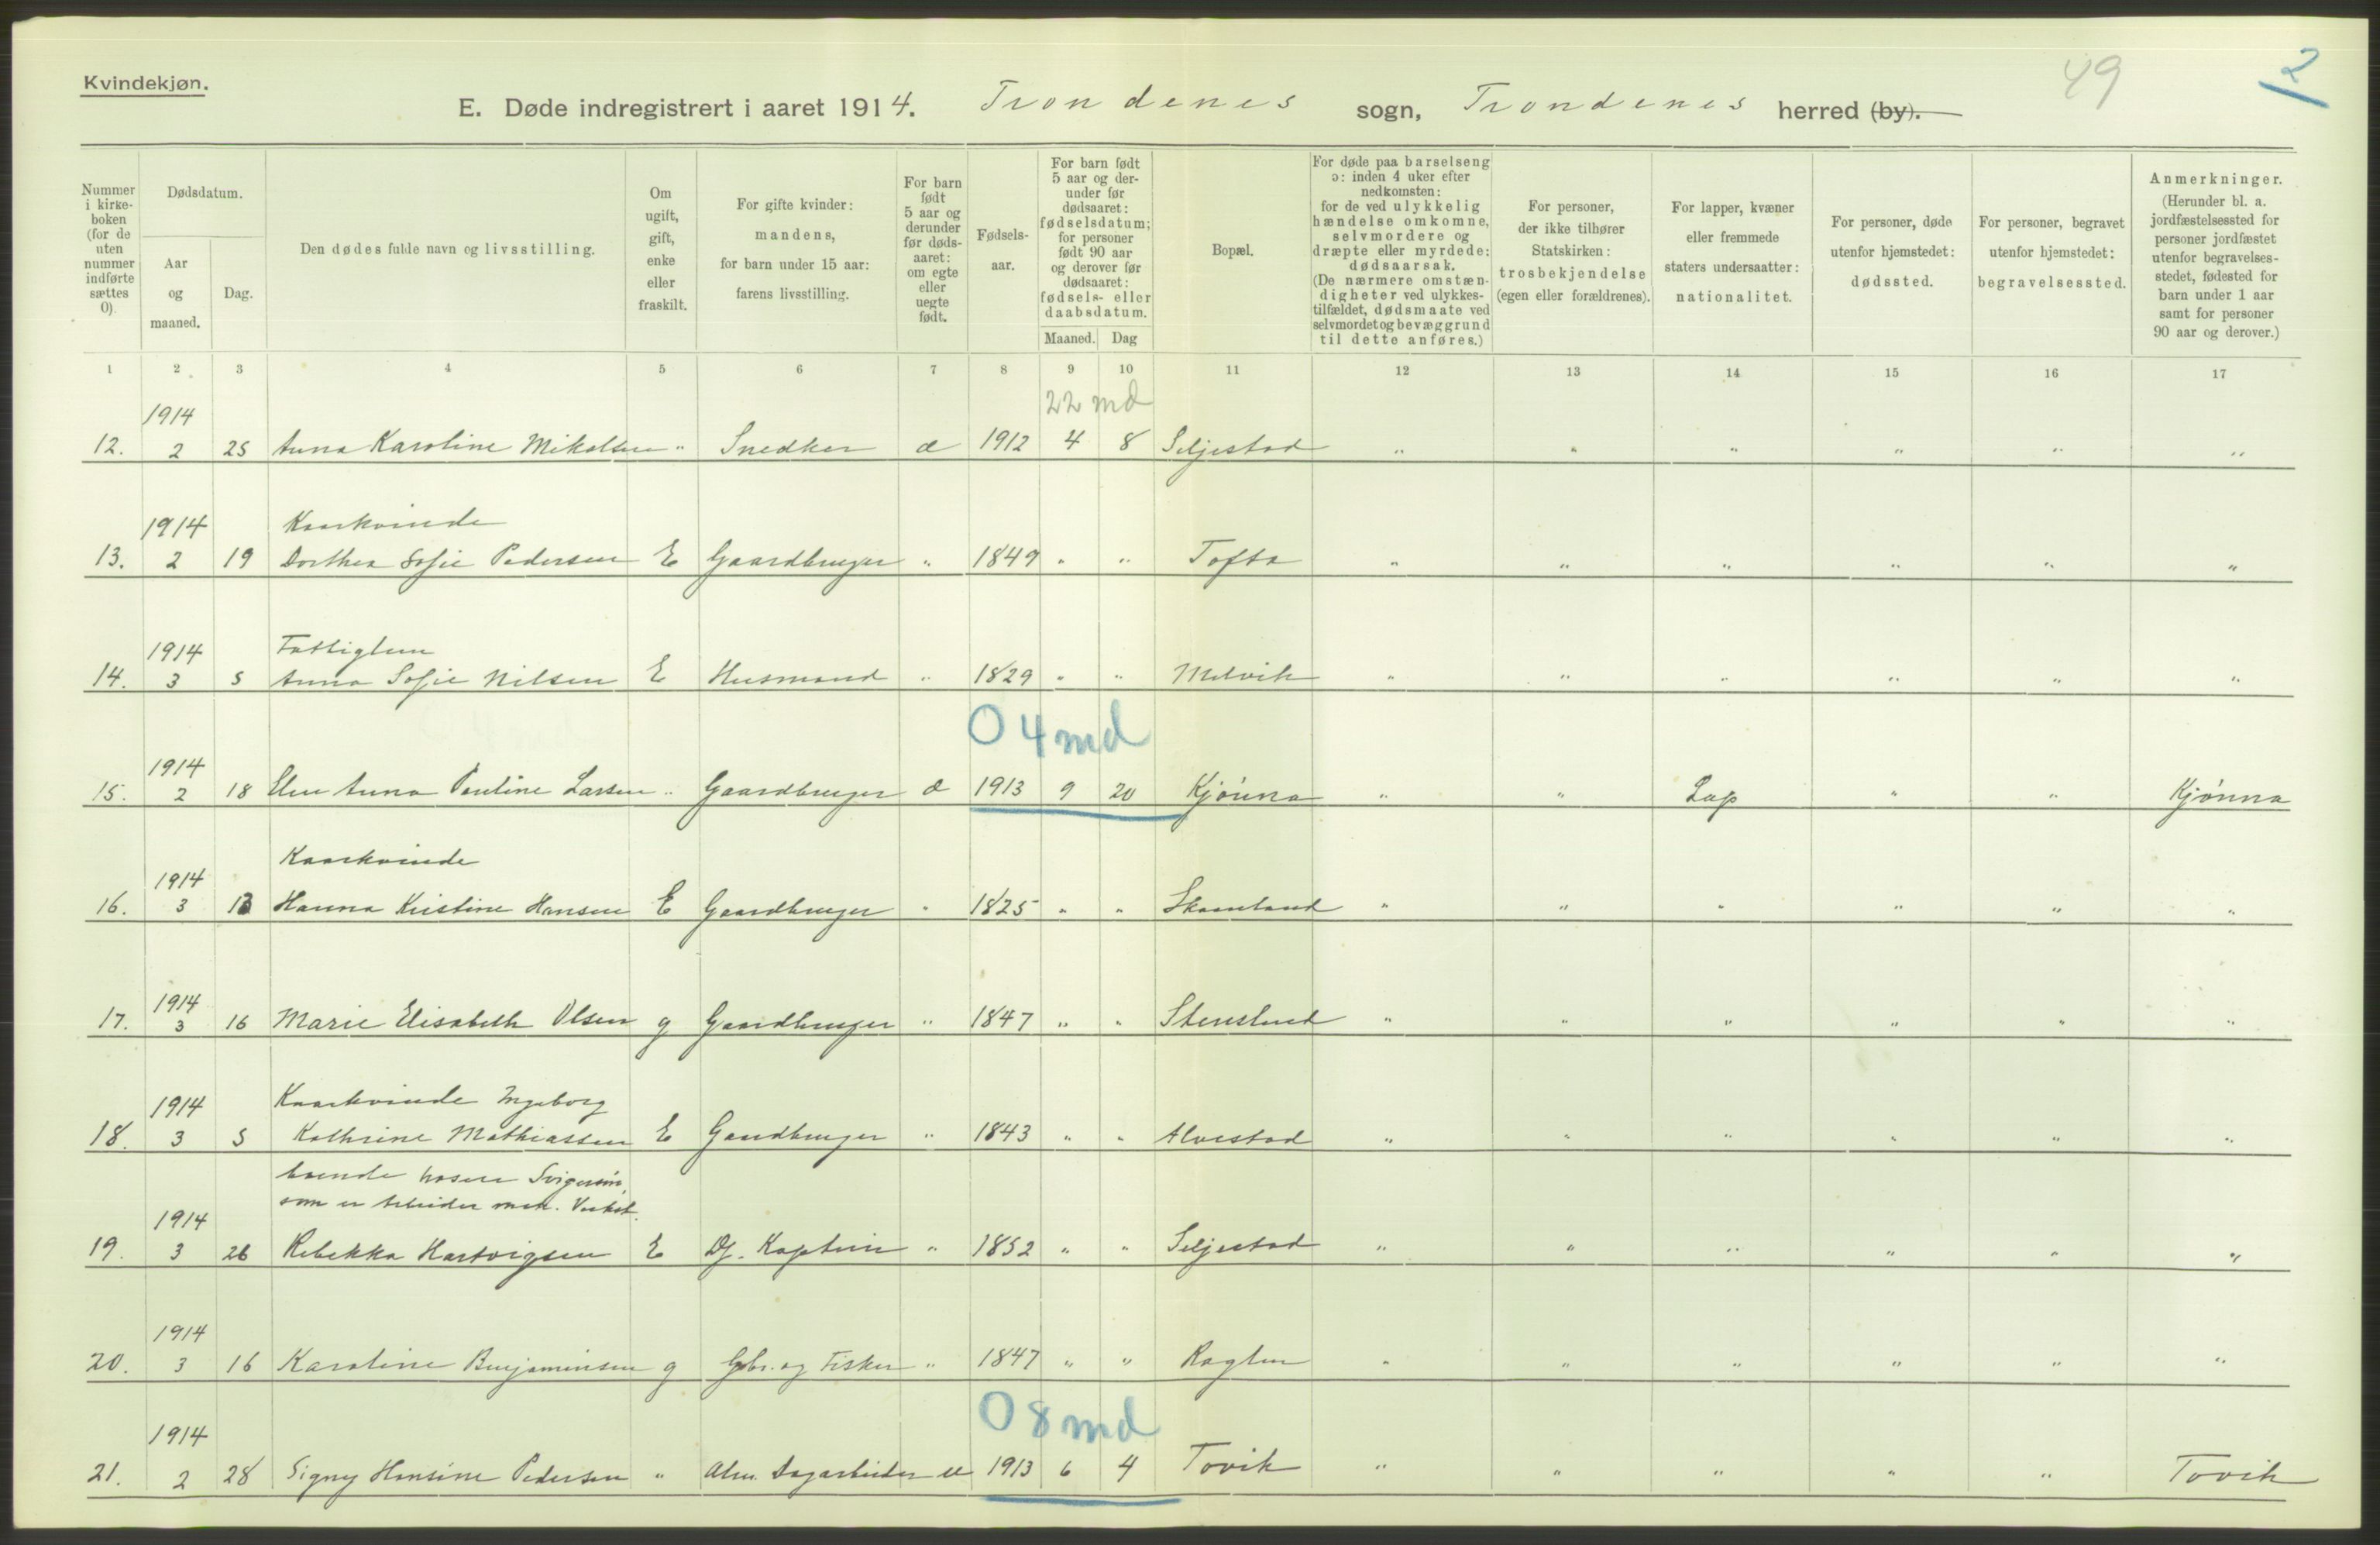 Kvindekjøn.
49
12
E. Døde indregistrert i aaret 1914. Trondenes sogn, Trondenes herred (by).
Nummer i kirke- boken (for de uten nummer indførte sættes 0).
Dødsdatum.
Aar og maaned.
Dag.
Den dødes fulde navn og livsstilling.
Om ugift, gift, enke eller fraskilt.
For gifte kvinder: mandens, for barn under 15 aar: farens livsstilling.
For barn født 5 aar og derunder før døds- aaret: om egte eller uegte født.
Fødsels- aar.
For barn født 5 aar og der- under før dødsaaret: fødselsdatum; for personer født 90 aar og derover før dødsaaret: fødsels- eller daabsdatum.
Maaned. Dag
Bopæl.
For døde paa barselseng ɔ: inden 4 uker efter nedkomsten: for de ved ulykkelig hændelse omkomne, selvmordere og dræpte eller myrdede: dødsaarsak. (De nærmere omstæn- digheter ved ulykkes- tilfældet, dødsmaate ved selvmordet og bevæggrund til dette anføres.)
For personer, der ikke tilhører Statskirken: trosbekjendelse (egen eller forældrenes).
For lapper, kvæner eller fremmede staters undersaatter: nationalitet.
For personer, døde utenfor hjemstedet: dødssted.
For personer, begravet utenfor hjemstedet: begravelsessted.
Anmerkninger. (Herunder bl. a. jordfæstelsessted for personer jordfæstet utenfor begravelses- stedet, fødested for barn under 1 aar samt for personer 90 aar og derover.)
1 2 3 4 5 6 7 8 9 10 11 12 13 14 15 16 17
22 md
1914
12. 2 25 Anna Karoline Mikalsen " Snedker æ 1912 4 8 Seljestad " " " " " "
1914 Kaarkvinde
13. 2 19 Dorthea Sofie Pedersen E Gaardbruger " 1849 " " Tofta " " " " " "
1914 Fattiglem
14. 3 5 Anna Sofie Nilsen E Husmand " 1829 " " Melvik " " " " " "
0 4 md
1914
15. 2 18 Elen Anna Pauline Larsen " Gaardbruger æ 1913 9 20 Kjönna " " Lap " " Kjönna
1914 Kaarkvinde
16. 3 13 Hanna Kristine Hansen E Gaardbruger " 1825 " " Skaanland " " " " " "
1914
17. 3 16 Marie Elisabeth Olsen g Gaardbruger " 1847 " " Stensland " " " " " "
1914 Kaarkvinde Ingeborg
18. 3 5 Kathrine Mathiassen E Gaardbruger " 1843 " " Alvestad " " " " " "
boende hos sin Svigersön,
som er Arbeider mek. Verkst.
1914
19. 3 26 Rebekka Hartvigsen E Df. Kaptein " 1852 " " Seljestad " " " " " "
1914
20. 3 16 Karoline Benjaminsen g Gbr. og Fisker " 1847 " " " " " " " "
0 8 md
1914
21. 2 28 Signy Hansine Pedersen " Alm. Dagarbeider u 1913 6 4 Tovik " " " " " Tovik